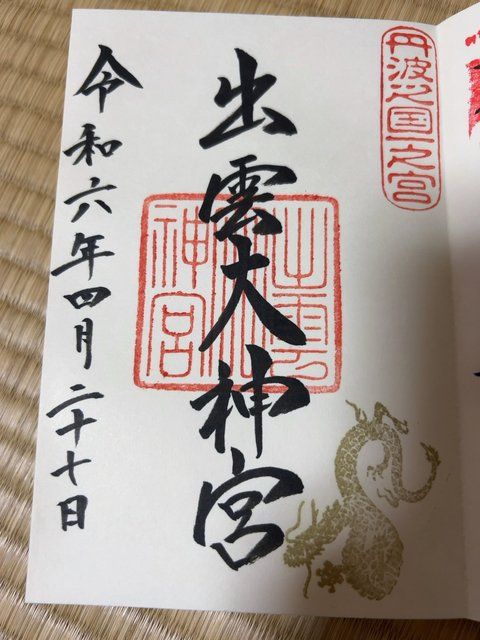 丹波之国一之宮
出雲大神宮
出雲
神宮
令和六年四月二十七日